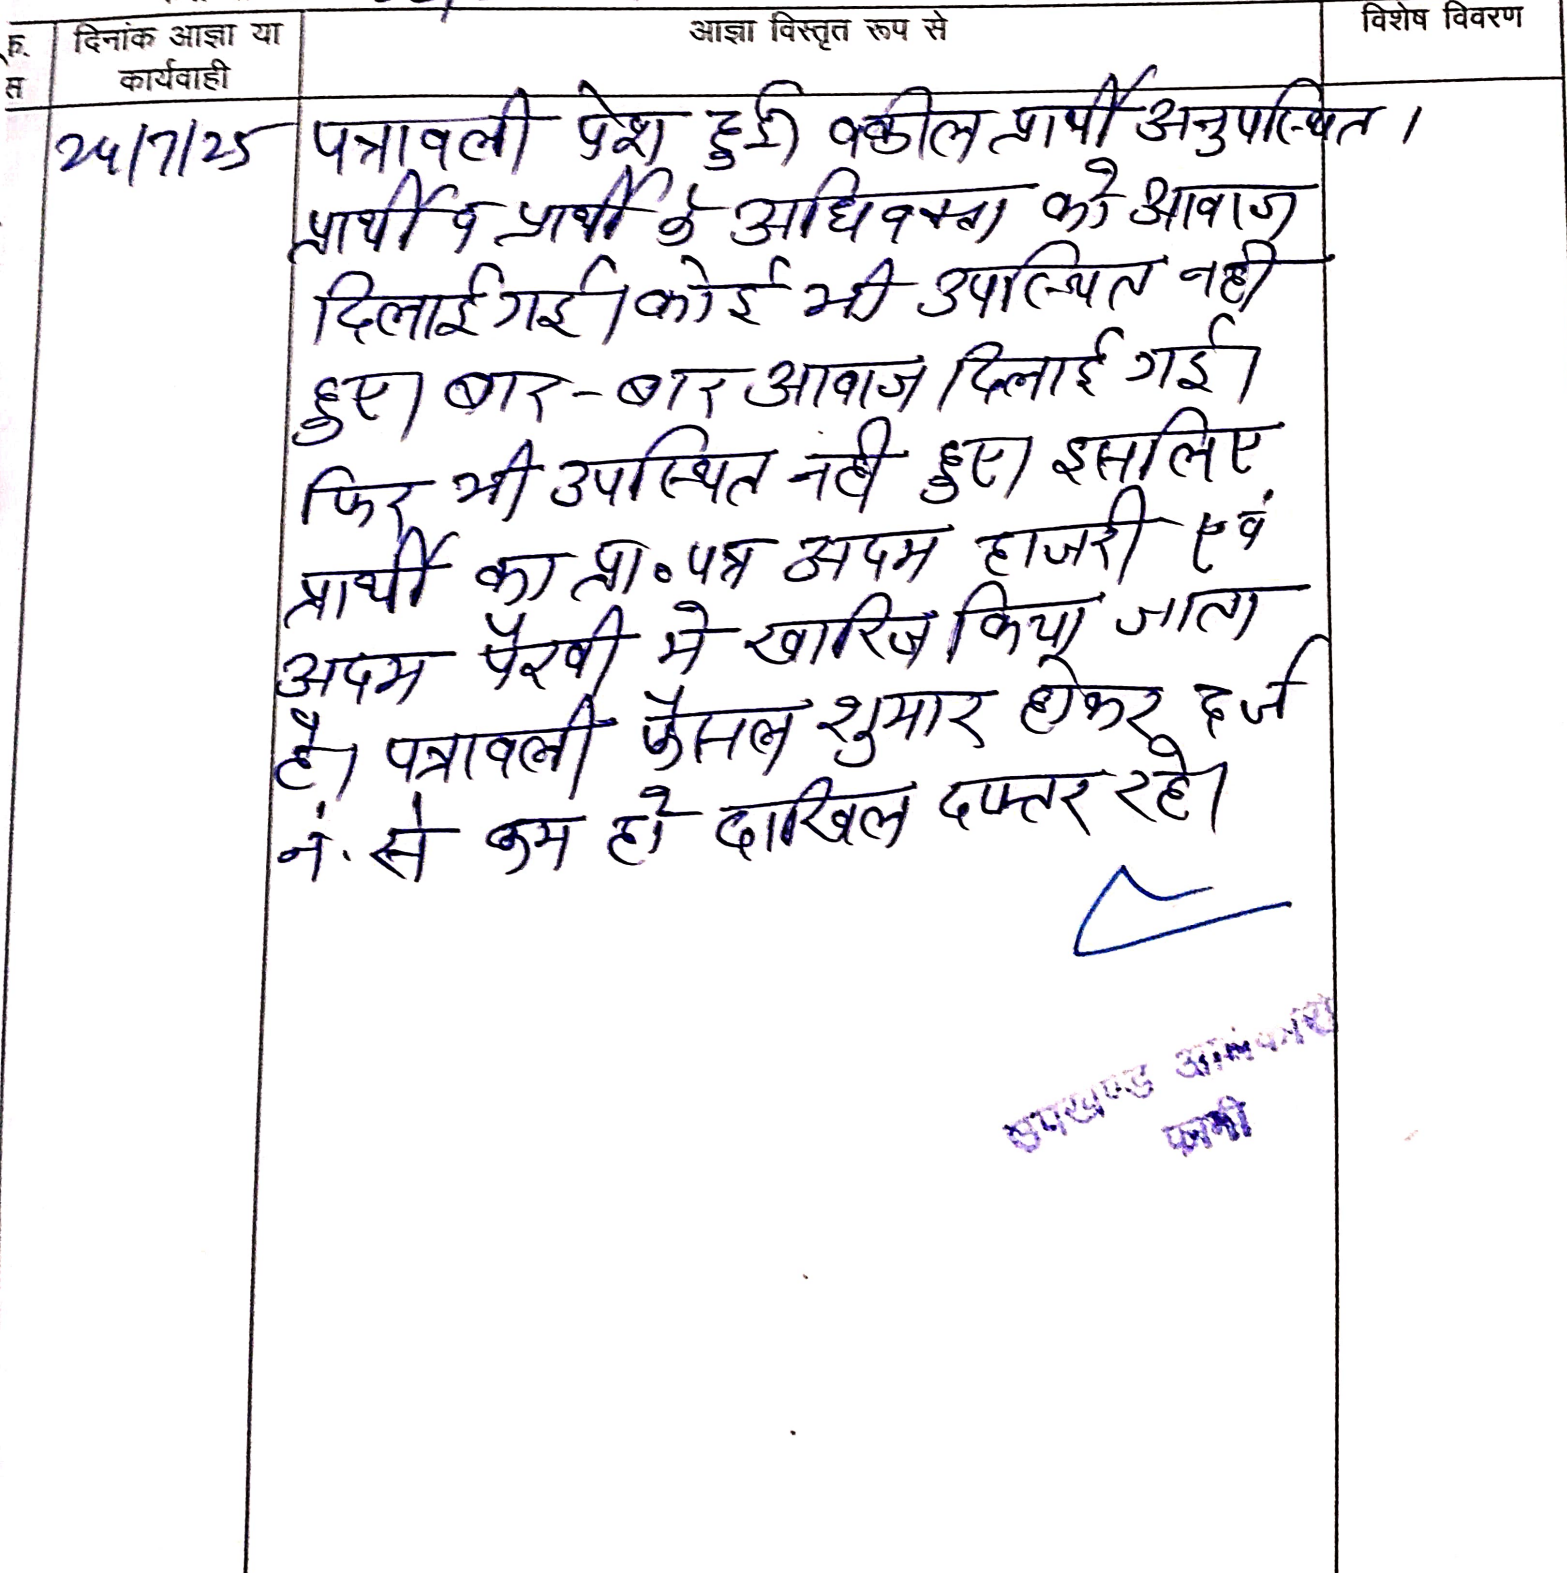 क्र. दिनांक आज्ञा या आज्ञा विस्तृत रूप से विशेष विवरण
स कार्यवाही
24/7/25 पत्रावली पेश हुई। वकील प्रार्थी अनुपस्थित।
प्रार्थी व प्रार्थी के अधिवक्ता को आवाज
दिलाई गई। कोई भी उपस्थित नही
हुए। बार-बार आवाज दिलाई गई।
फिर भी उपस्थित नही हुए। इसलिए
प्रार्थी का प्रा॰पत्र अदम हाजरी एवं
अदम पैरवी मे खारिज किया जाता
है। पत्रावली फैसल शुमार होकर दर्ज
नं. से कम हो दाखिल दफ्तर रहे।
उपखण्ड अधिकारी